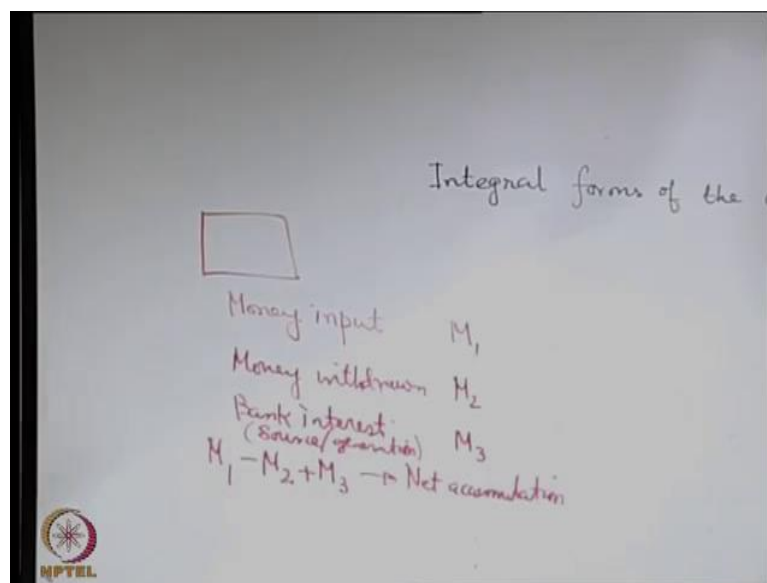 Integral forms of the
Money input M₁
Money withdrawn M₂
Bank interest
(Source/generation) M₃
M₁ - M₂ + M₃ → Net accumulation
NPTEL